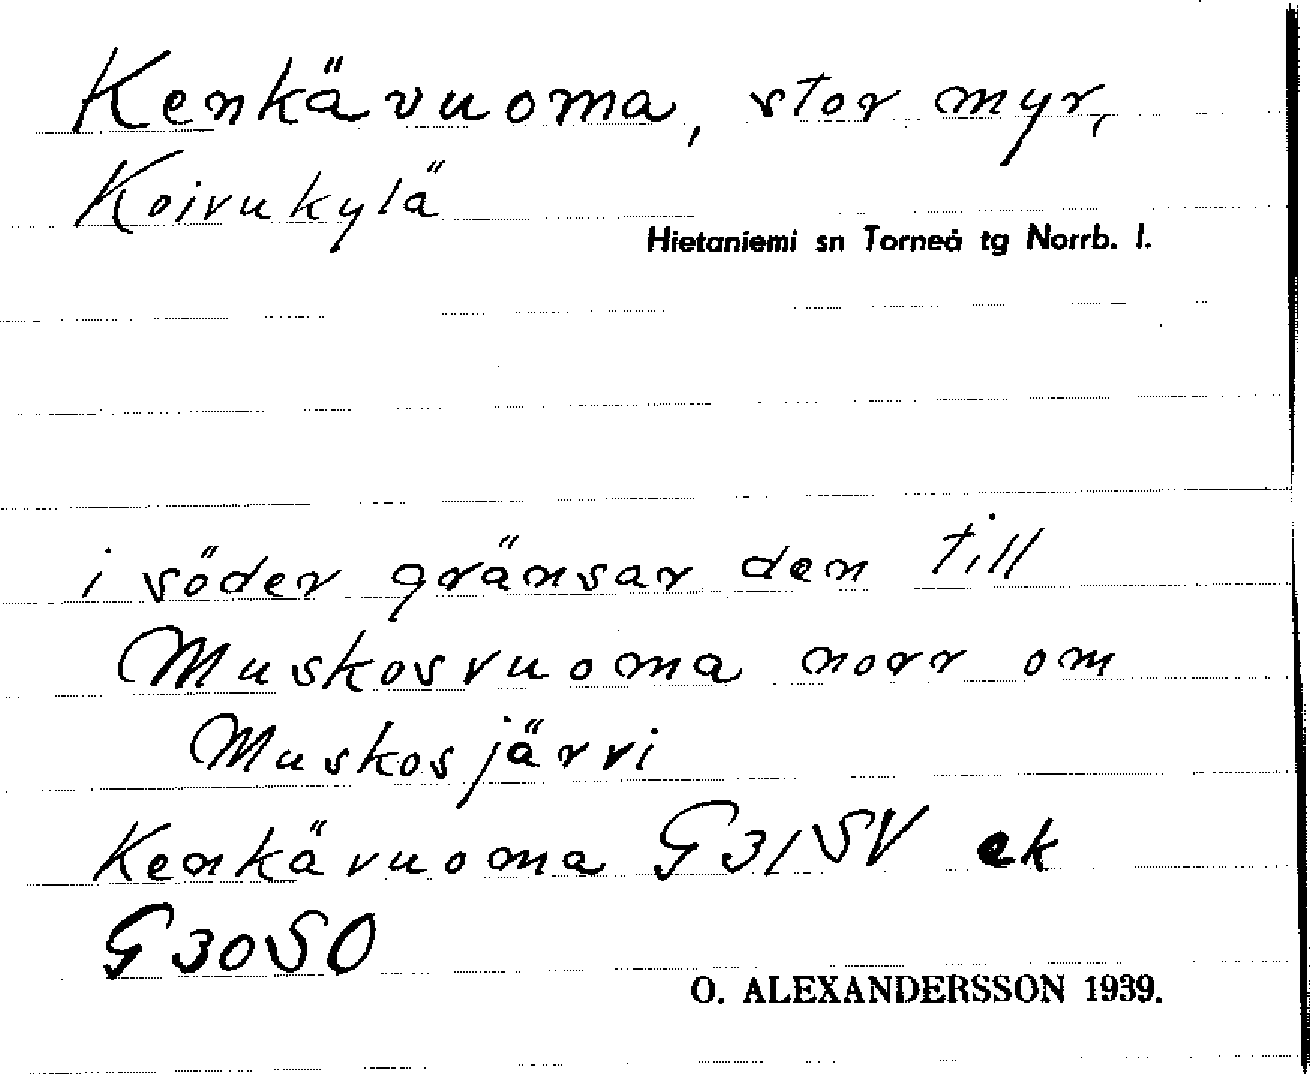 Kenkävuoma, stor myr,
Koivukylä
Hietaniemi sn Torneå tg Norrb. l.
i söder gränsar den till
Muskosvuoma norr om
Muskosjärvi
Kenkävuoma G31SV ek
G30SO
O. ALEXANDERSSON 1939.